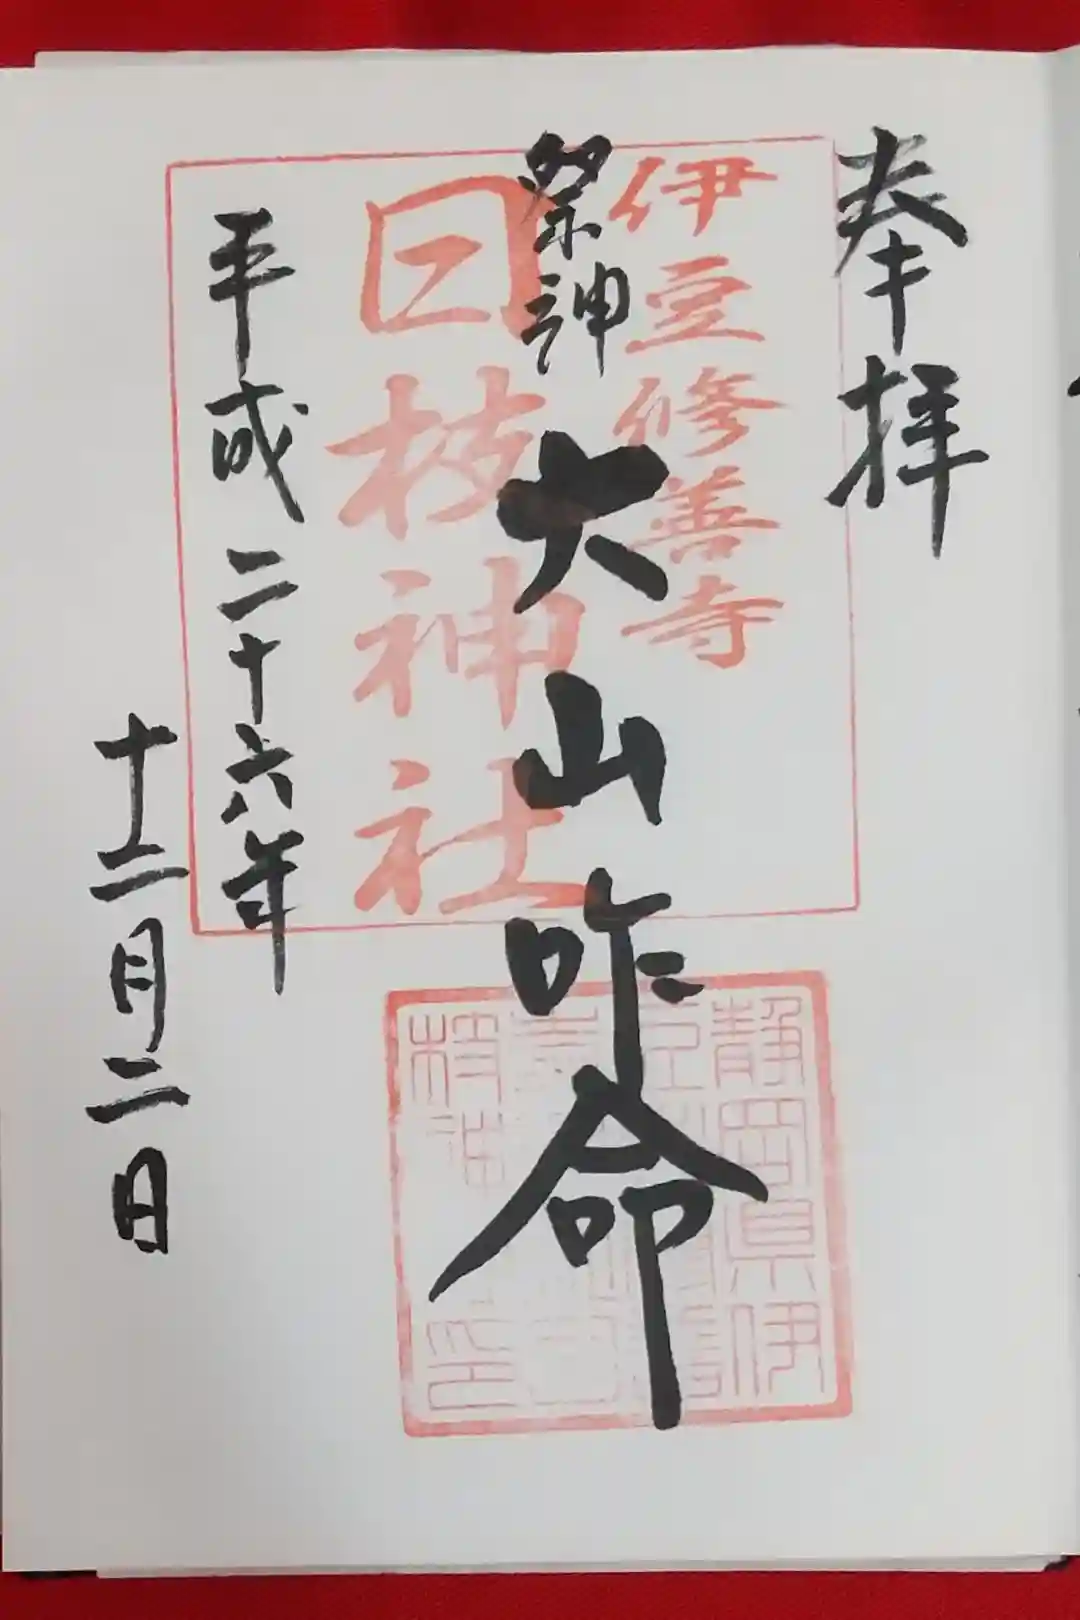 奉拝
伊豆修善寺
祭神 大山咋命
日枝神社
平成二十六年
十二月二日
静岡県伊